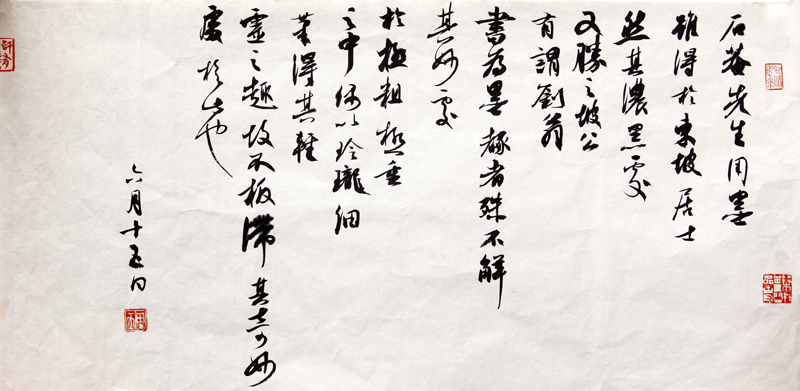 石菴先生用墨
雖得於東坡居士
然其濃黑處
又勝之坡公
有謂劉翁
書為墨豬者殊不解
其妙處
於極粗極重
之中以玲瓏細
筆得其輕
靈之趣故不板滯其奇妙
處於此也
六月十五日